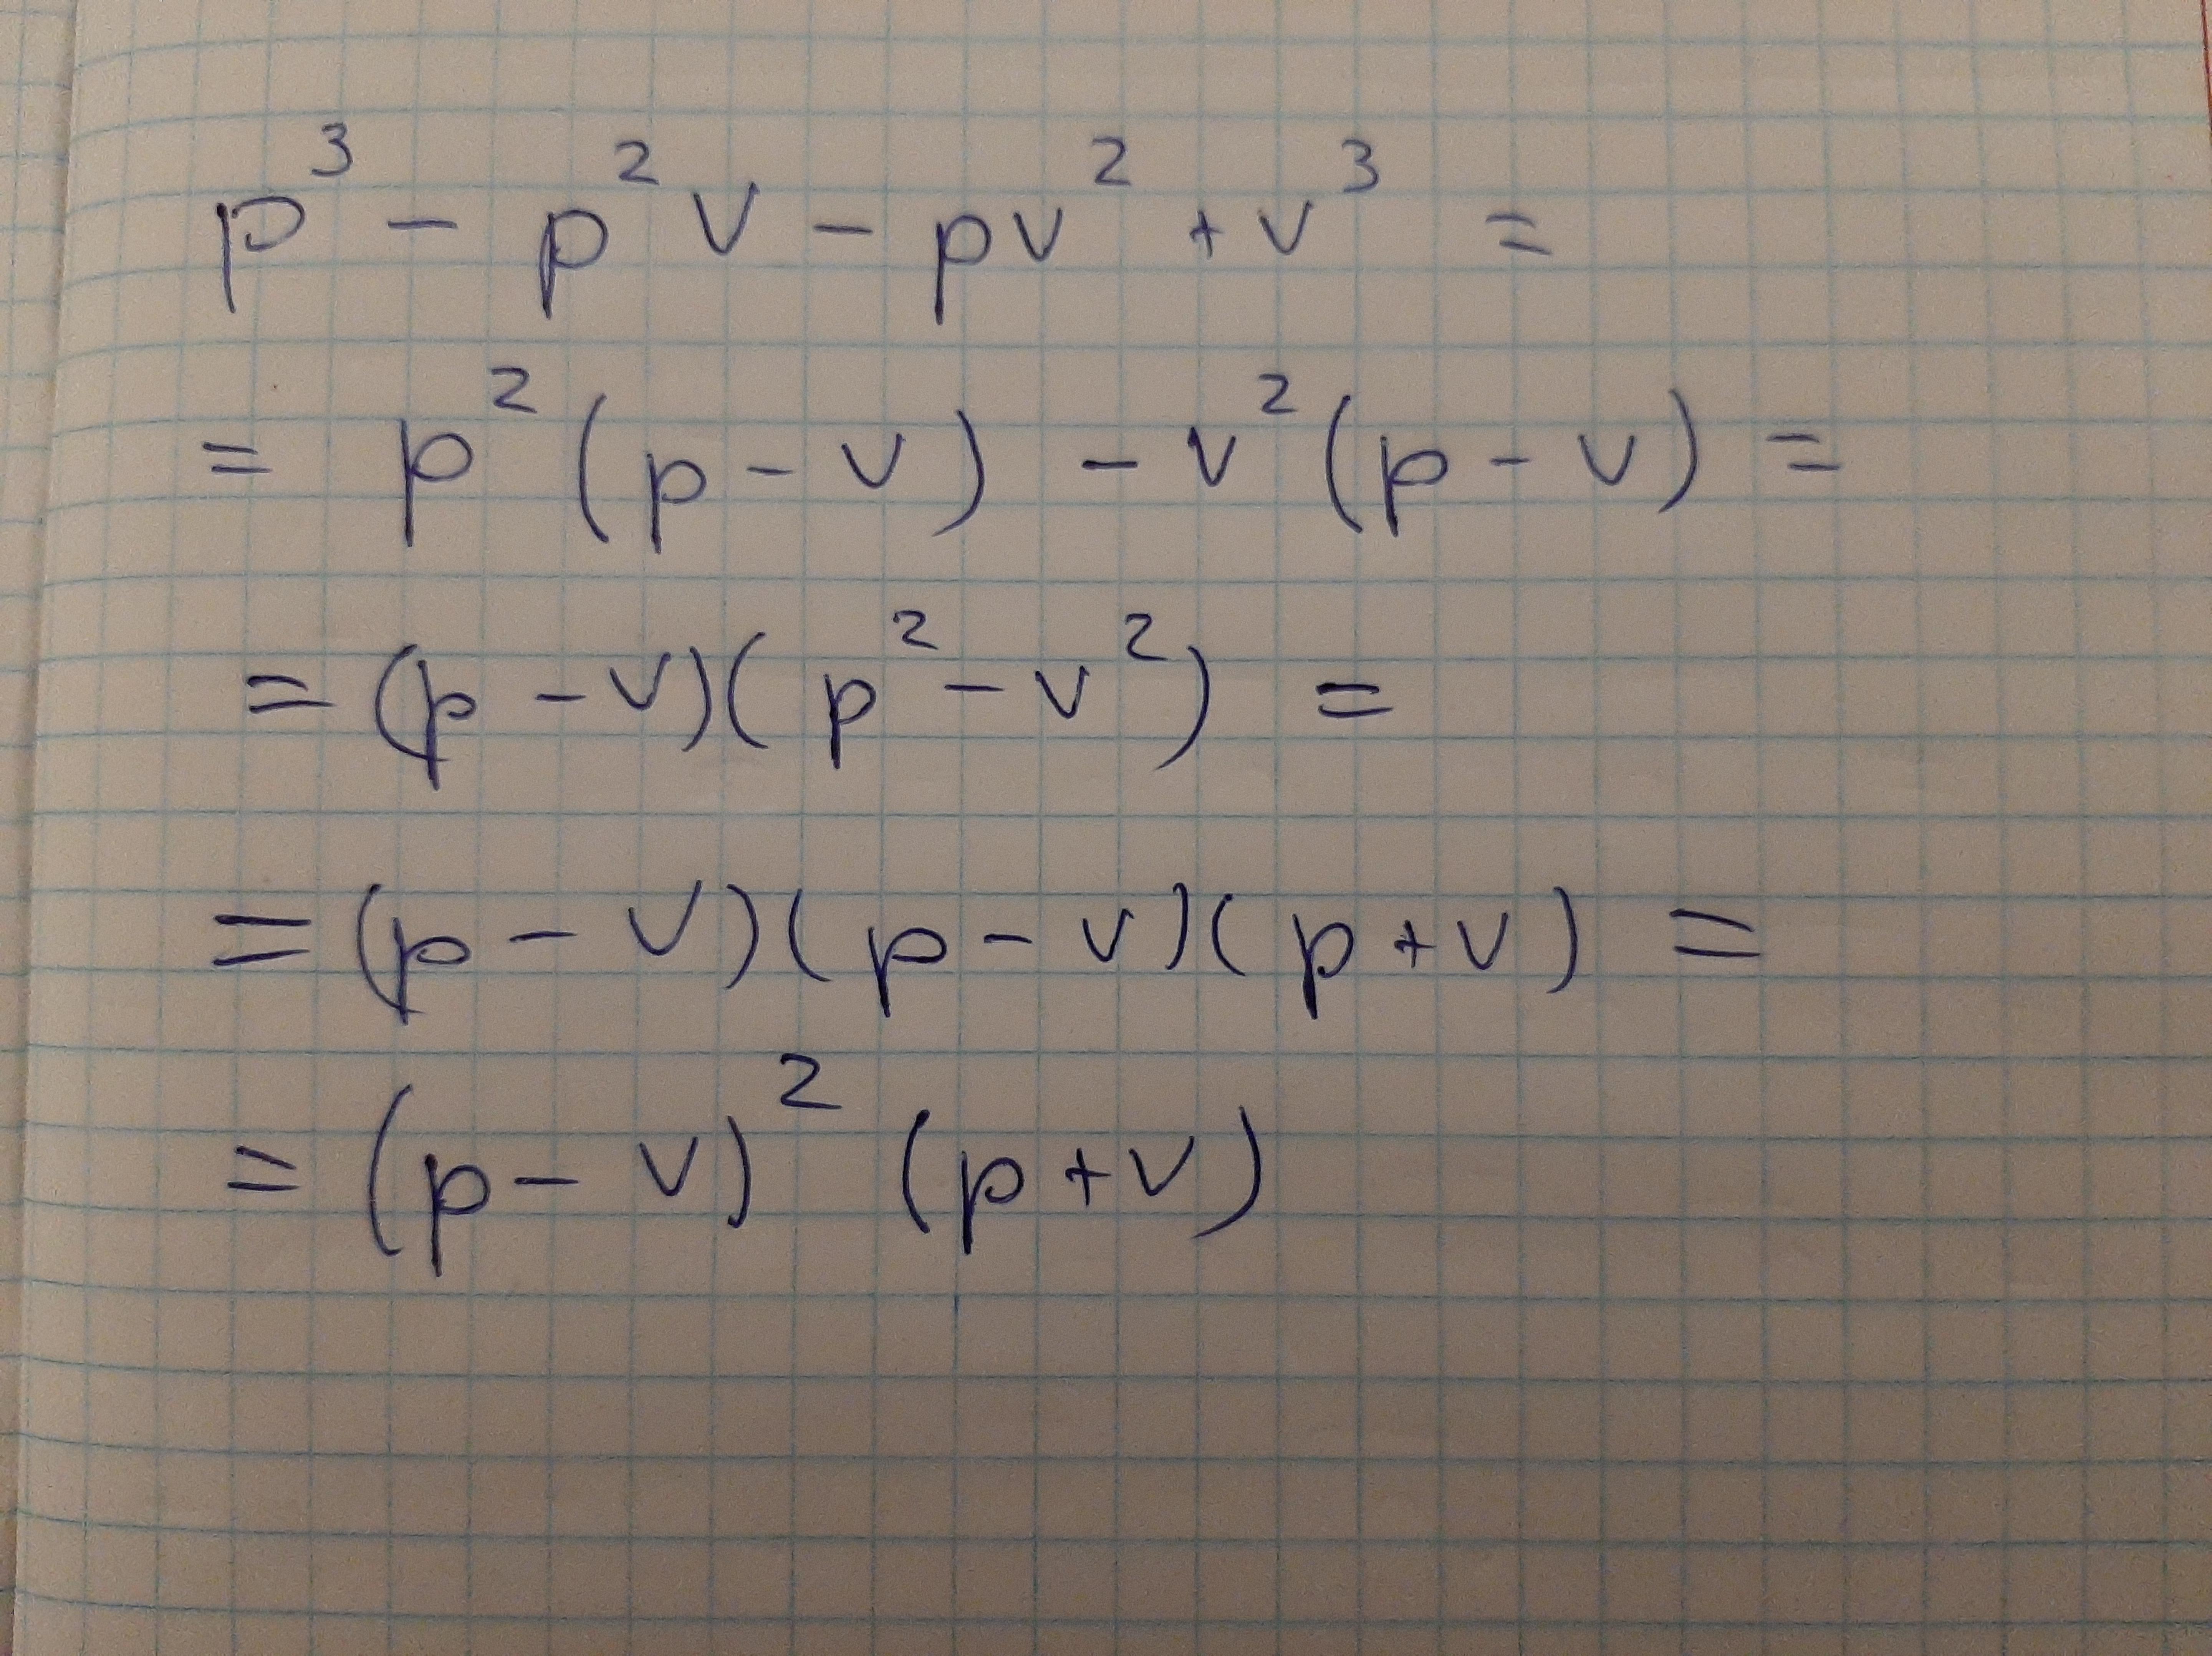 p³ - p²v - pv² + v³ =
= p²(p - v) - v²(p - v) =
= (p - v)(p² - v²) =
= (p - v)(p - v)(p + v) =
= (p - v)²(p + v)